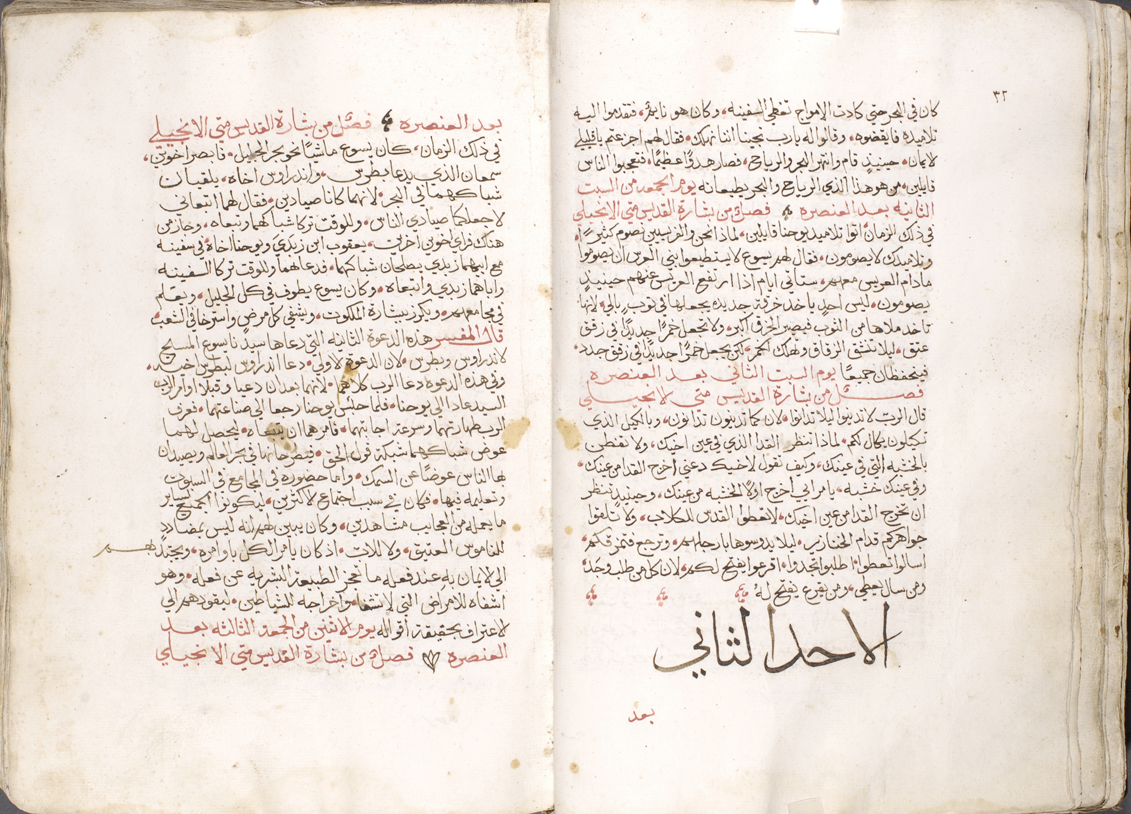 ٣٢
كان في البحر حتى كادت الامواج تغطي السفينه وكان هو نايم فتقدموا اليه
تلاميذه فايقضوه وقالوا له يارب نجينا اننا نهلك فقال لهم اجزعتم ياقليلي
الايمان حينيذٍ قام وانتهر البحر والرياح فصار هدوًّا عظيمًا فتعجبوا الناس
قايلين من هو هذا الذي الرياح والبحر يطيعانه يوم الجمعه من السبت
الثانيه بعد العنصره فصل من بشارة القديس متى الانجيلي
في ذلك الزمان اتوا تلاميذ يوحنا قايلين لماذا نحن والفريسيين نصوم كثيرًا
وتلاميذك لا يصومون فقال لهم يسوع لا يستطيعوا بني العرس ان يصوموا
مادام العريس معهم ستاتي ايام اذا ارتفع العريس عنهم حينيذٍ
يصومون ليس احدٍ ياخذ خرقة جديده يجعلها في ثوبٍ بالي لانها
تاخد ملاها من الثوب فيصير الخرق اكبر ولا تجعل خمرًا جديدًا في زقق
عتق ليلا تنشق الزقاق ويهلك الخمر لكن يجعل خمرًا جديدًا في زقق جدد
فيتحفظان جميعًا يوم السبت الثاني بعد العنصره
فصل من بشارة القديس متى الانجيلي
قال الرب لا تدينوا ليلا تدانوا لان كما تدينون تدانون وبالكيل الذي
تكيلون يكال لكم لماذا تنظر القدا الذي في عين اخيك ولا تفطن
بالخشبه التي في عينك وكيف تقول لاخيك دعني اخرج القدا من عينك
وفي عينك خشبه يامرايي اخرج اولًا الخشبه من عينك وحينيذٍ تنظر
ان تخرج القدا من عين اخيك لا تعطوا القدس للكلاب ولا تلقوا
جواهركم قدام الخنازير ليلا يدوسوها بارجلهم وترجع فتمزقكم
اسالوا تعطوا اطلبوا تجدوا اقرعوا يفتح لكم لان كل من طلب وجد
ومن سال يعطي ومن يقرع يفتح له
الاحد الثاني
بعد
بعد العنصره فصل من بشارة القديس متى الانجيلي
في ذلك الزمان كان يسوع ماشيًا نحو بحر الجليل فابصر اخوين
سمعان الذي يدعا بطرس واندراوس اخاه يلقيان
شباكهما في البحر لانهما كانا صيادين فقال لهما اتبعاني
لاجعلكما صيادي الناس وللوقت تركا شباكهما وتبعاه وجاز من
هناك فراى اخوين اخرين يعقوب ابن زبدي ويوحنا اخاه في سفينه
مع ابيهما زبدي يصلحان شباكهما فدعاهما وللوقت تركا السفينه
واباهما زبدي واتبعاه وكان يسوع يطوف في كل الجليل ويعلم
في مجامعهم ويكرز ببشارة الملكوت ويشفي كل مرضٍ واسترخا في الشعب
قال المفسر هذه الدعوة الثانيه التي دعاها سيدنا يسوع المسيح
لاندراوس وبطرس لان الدعوة الاولى دعا اندراوس لبطرس اخيه
وفي هذه الدعوه دعا الرب كلاهما لانهما بعد ان دعيا وقبلا اوامر الرب
السيد عادا الى يوحنا فلما حبس يوحنا رجعا الى صناعتهما فعرف
الرب طهارتهما وسرعة اجابتهما فامرهما ان يتبعاه ليحصل لهما
عوض شباكهما شبكة قول الحق فيطرحانها في بحر العالم ويصيدان
بها الناس عوضًا عن السمك واما حضوره في المجامع في السبوت
وتعليمه فيها فكان في سبب اجتماع الاكثرين ليكونوا الجميع لساير
ما يعمله من العجايب مشاهدين وكان يبين لهم انه ليس بمضادد
للناموس العتيق ولا للاب اذ كان يامر الكل باوامره ويجتذبهم
الى الايمان به عند فعله ما تعجز الطبيعة البشريه عن فعله وهو
اشفاه للامراض التي لا تشفا واخراجه للشياطين ليقودهم الى
الاعتراف بحقيقة اقواله يوم الاثنين من الجمعة الثالثه بعد
العنصره فصل من بشارة القديس متى الانجيلي